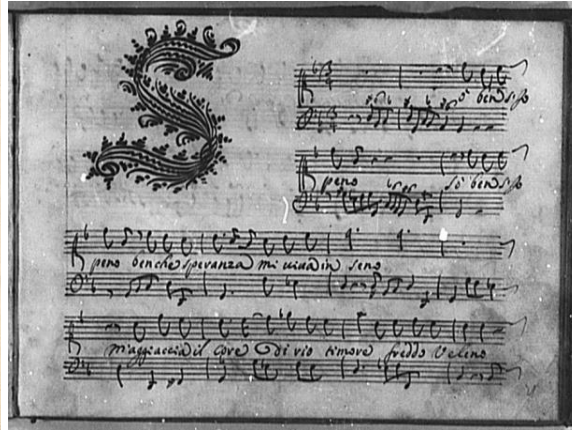 S
ò ben s'io
peno sò ben s'io
peno benche speranza mi viva in seno
m'agghiaccia il core e di rio timore freddo veleno